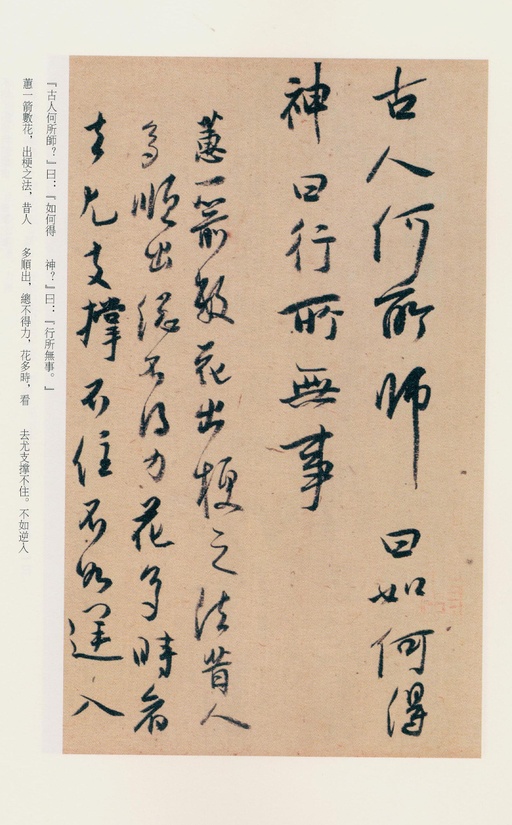 古人何所師曰如何得
神曰行所無事
蕙一箭數花出梗之法昔人
多順出總不得力花多時看
去尤支撐不住不如逆入
『古人何所師？』曰：『如何得　神？』曰：『行所無事。』
蕙一箭數花，出梗之法，昔人　多順出，總不得力，花多時，看　去尤支撐不住。不如逆入